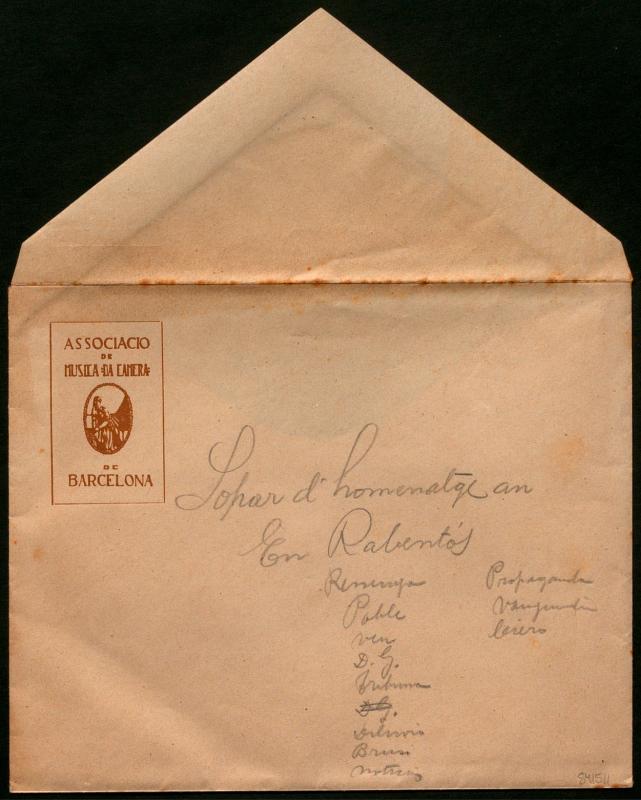 ASSOCIACIO
DE
MUSICA "DA CAMERA"
DE
BARCELONA
Sopar d'homenatge an
En Rabentós
Poble
Veu
D. G.
Tribuna
D.G.
Diluvio
Brusi
Noticies
Propaganda
Vanguardia
Ciero